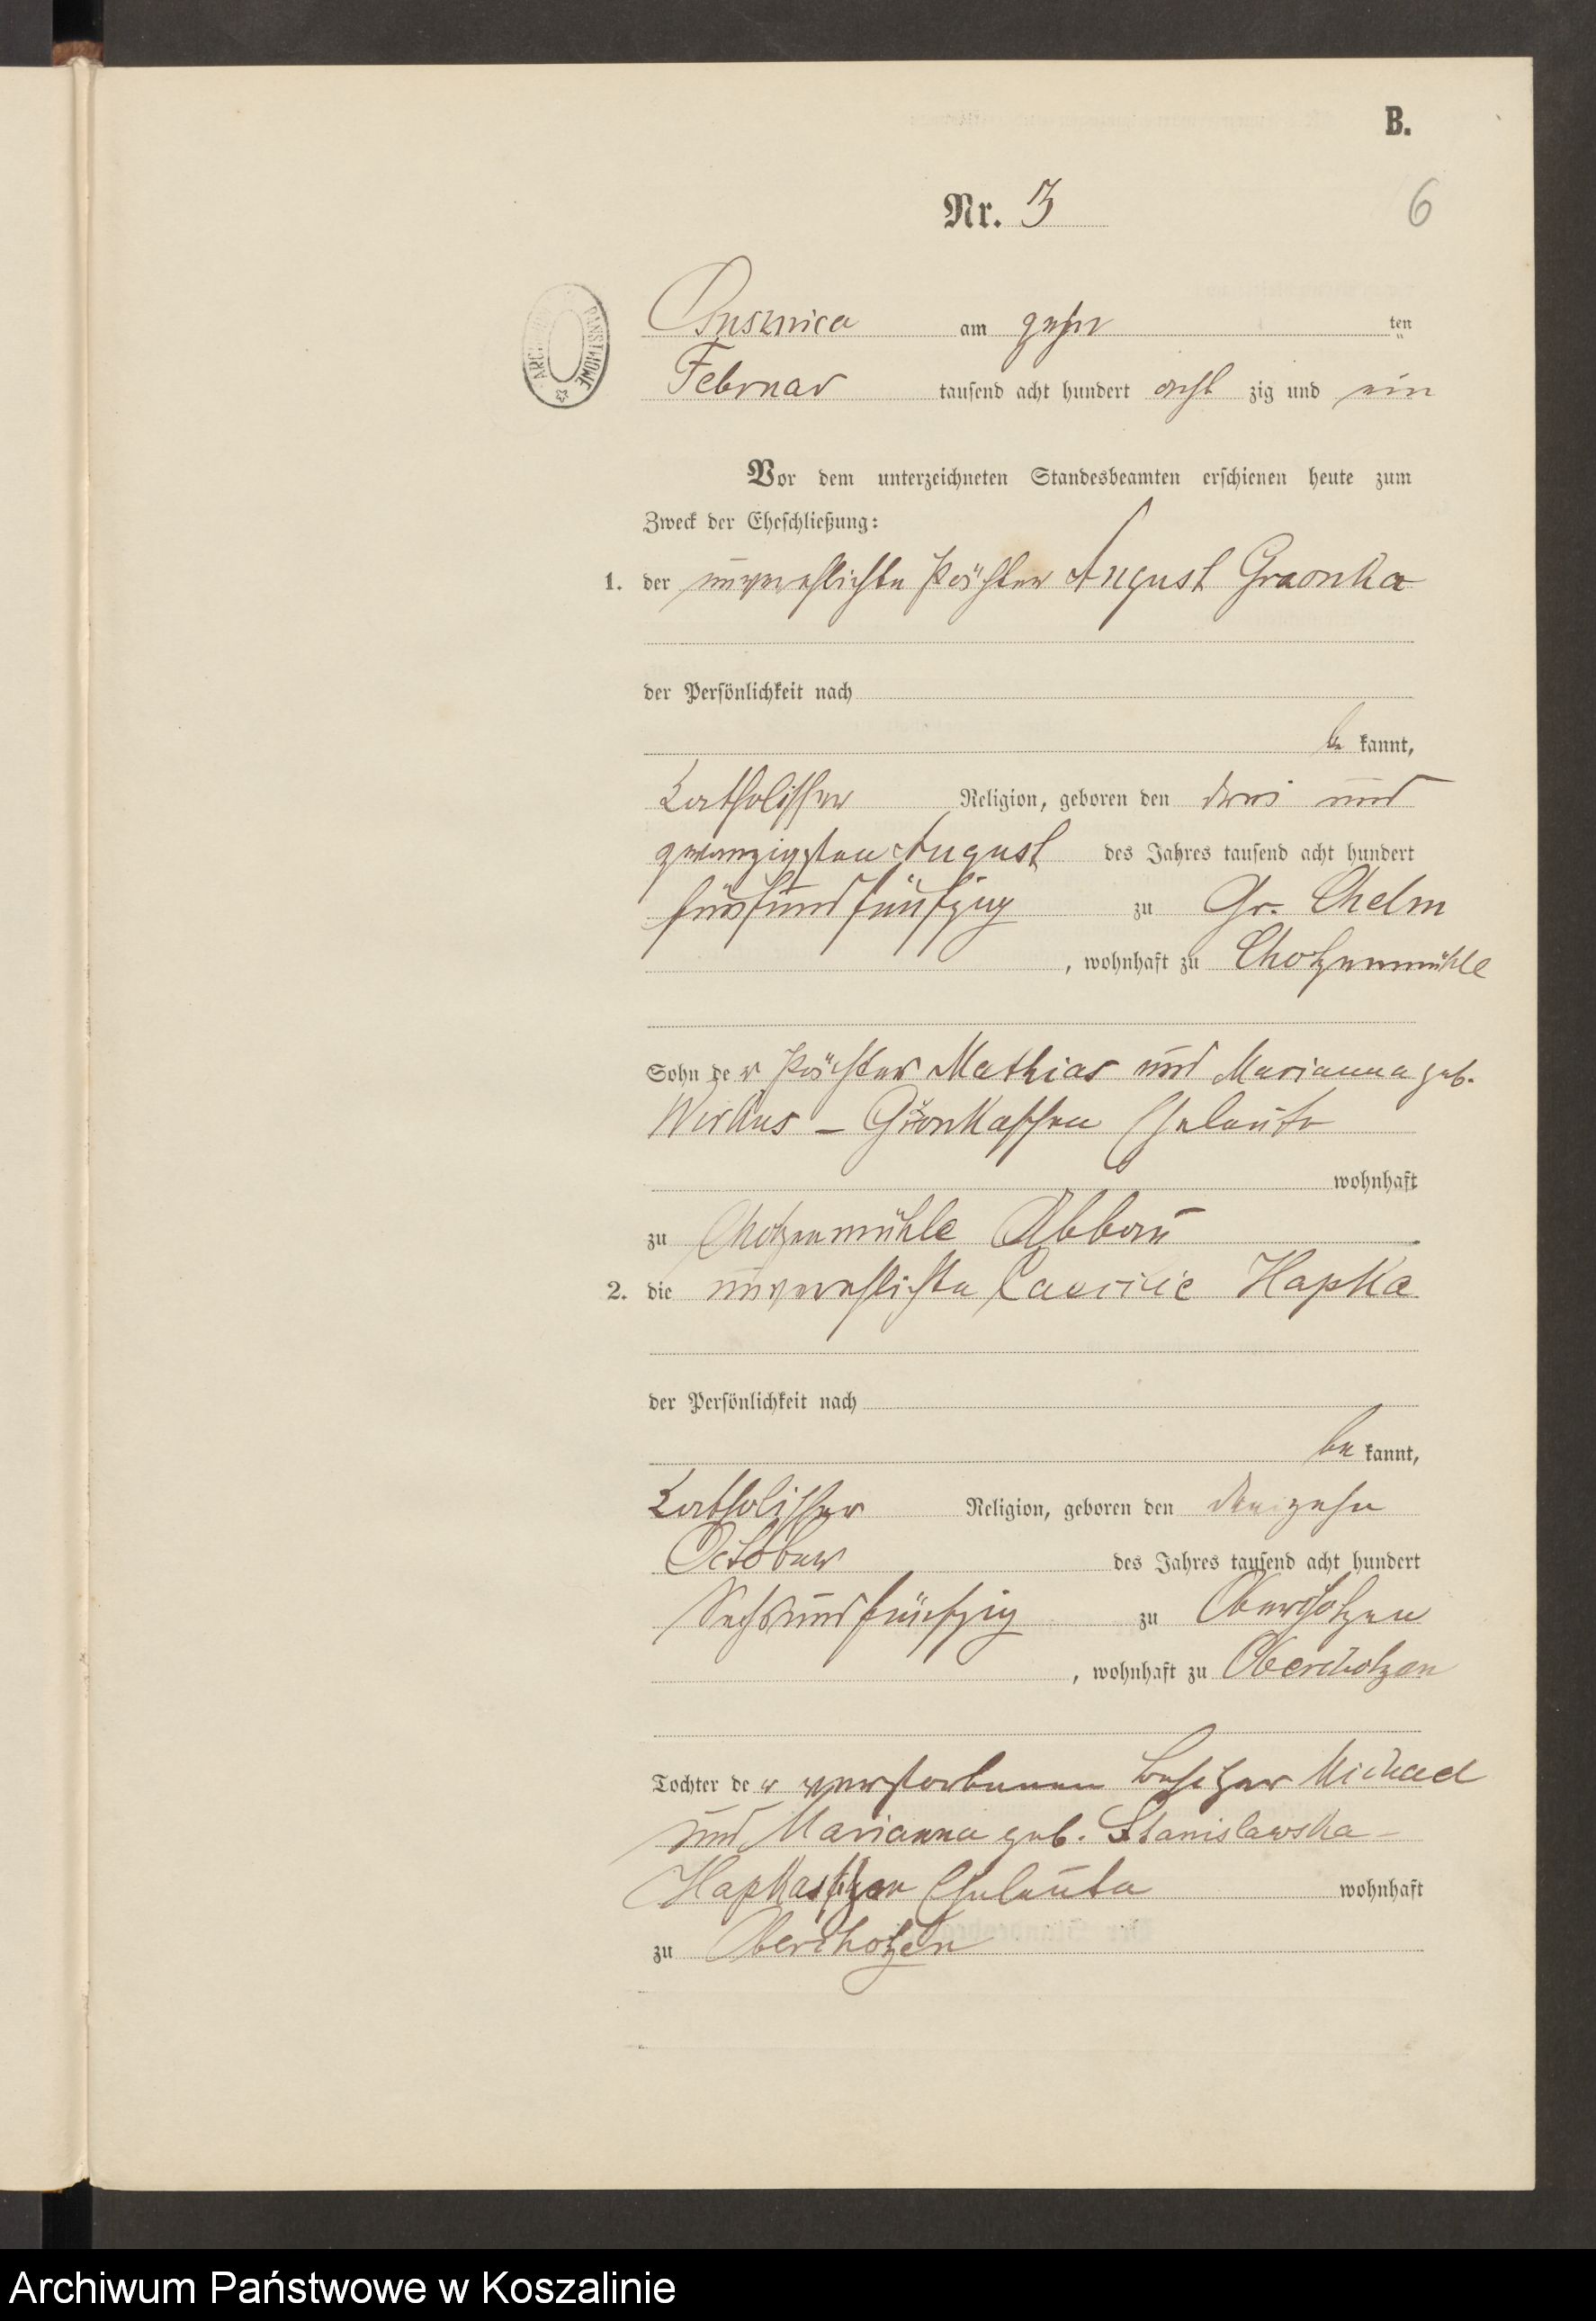 B.
Nr. 3
6
ARCHIWUM PAŃSTWOWE
am zehn ten
Februar tausend acht hundert acht zig und ein
Vor dem unterzeichneten Standesbeamten erschienen heute zum
Zweck der Eheschließung:
1. der unverehlichte Pächter August
der Persönlichkeit nach
be kannt,
katholischer Religion, geboren den drei und
zwanzigsten August des Jahres tausend acht hundert
fünfundfünfzig zu Gr. Chelm
, wohnhaft zu Chotzenmühle
Sohn der Pächter Mathias und Marianna geb.
Wirkus – Eheleute
wohnhaft
zu Chotzenmühle Abbau
2. die unverehlichte Caecilie Hapka
der Persönlichkeit nach
be kannt,
katholischer Religion, geboren den dreizehn
October des Jahres tausend acht hundert
sechsundfünfzig zu Oberchotzen
, wohnhaft zu Oberchotzen
Tochter der verstorbenen Besitzer Michael
und Marianna geb. Stanislawska –
Hapkaschen Eheleute wohnhaft
zu Oberchotzen
Archiwum Państwowe w Koszalinie